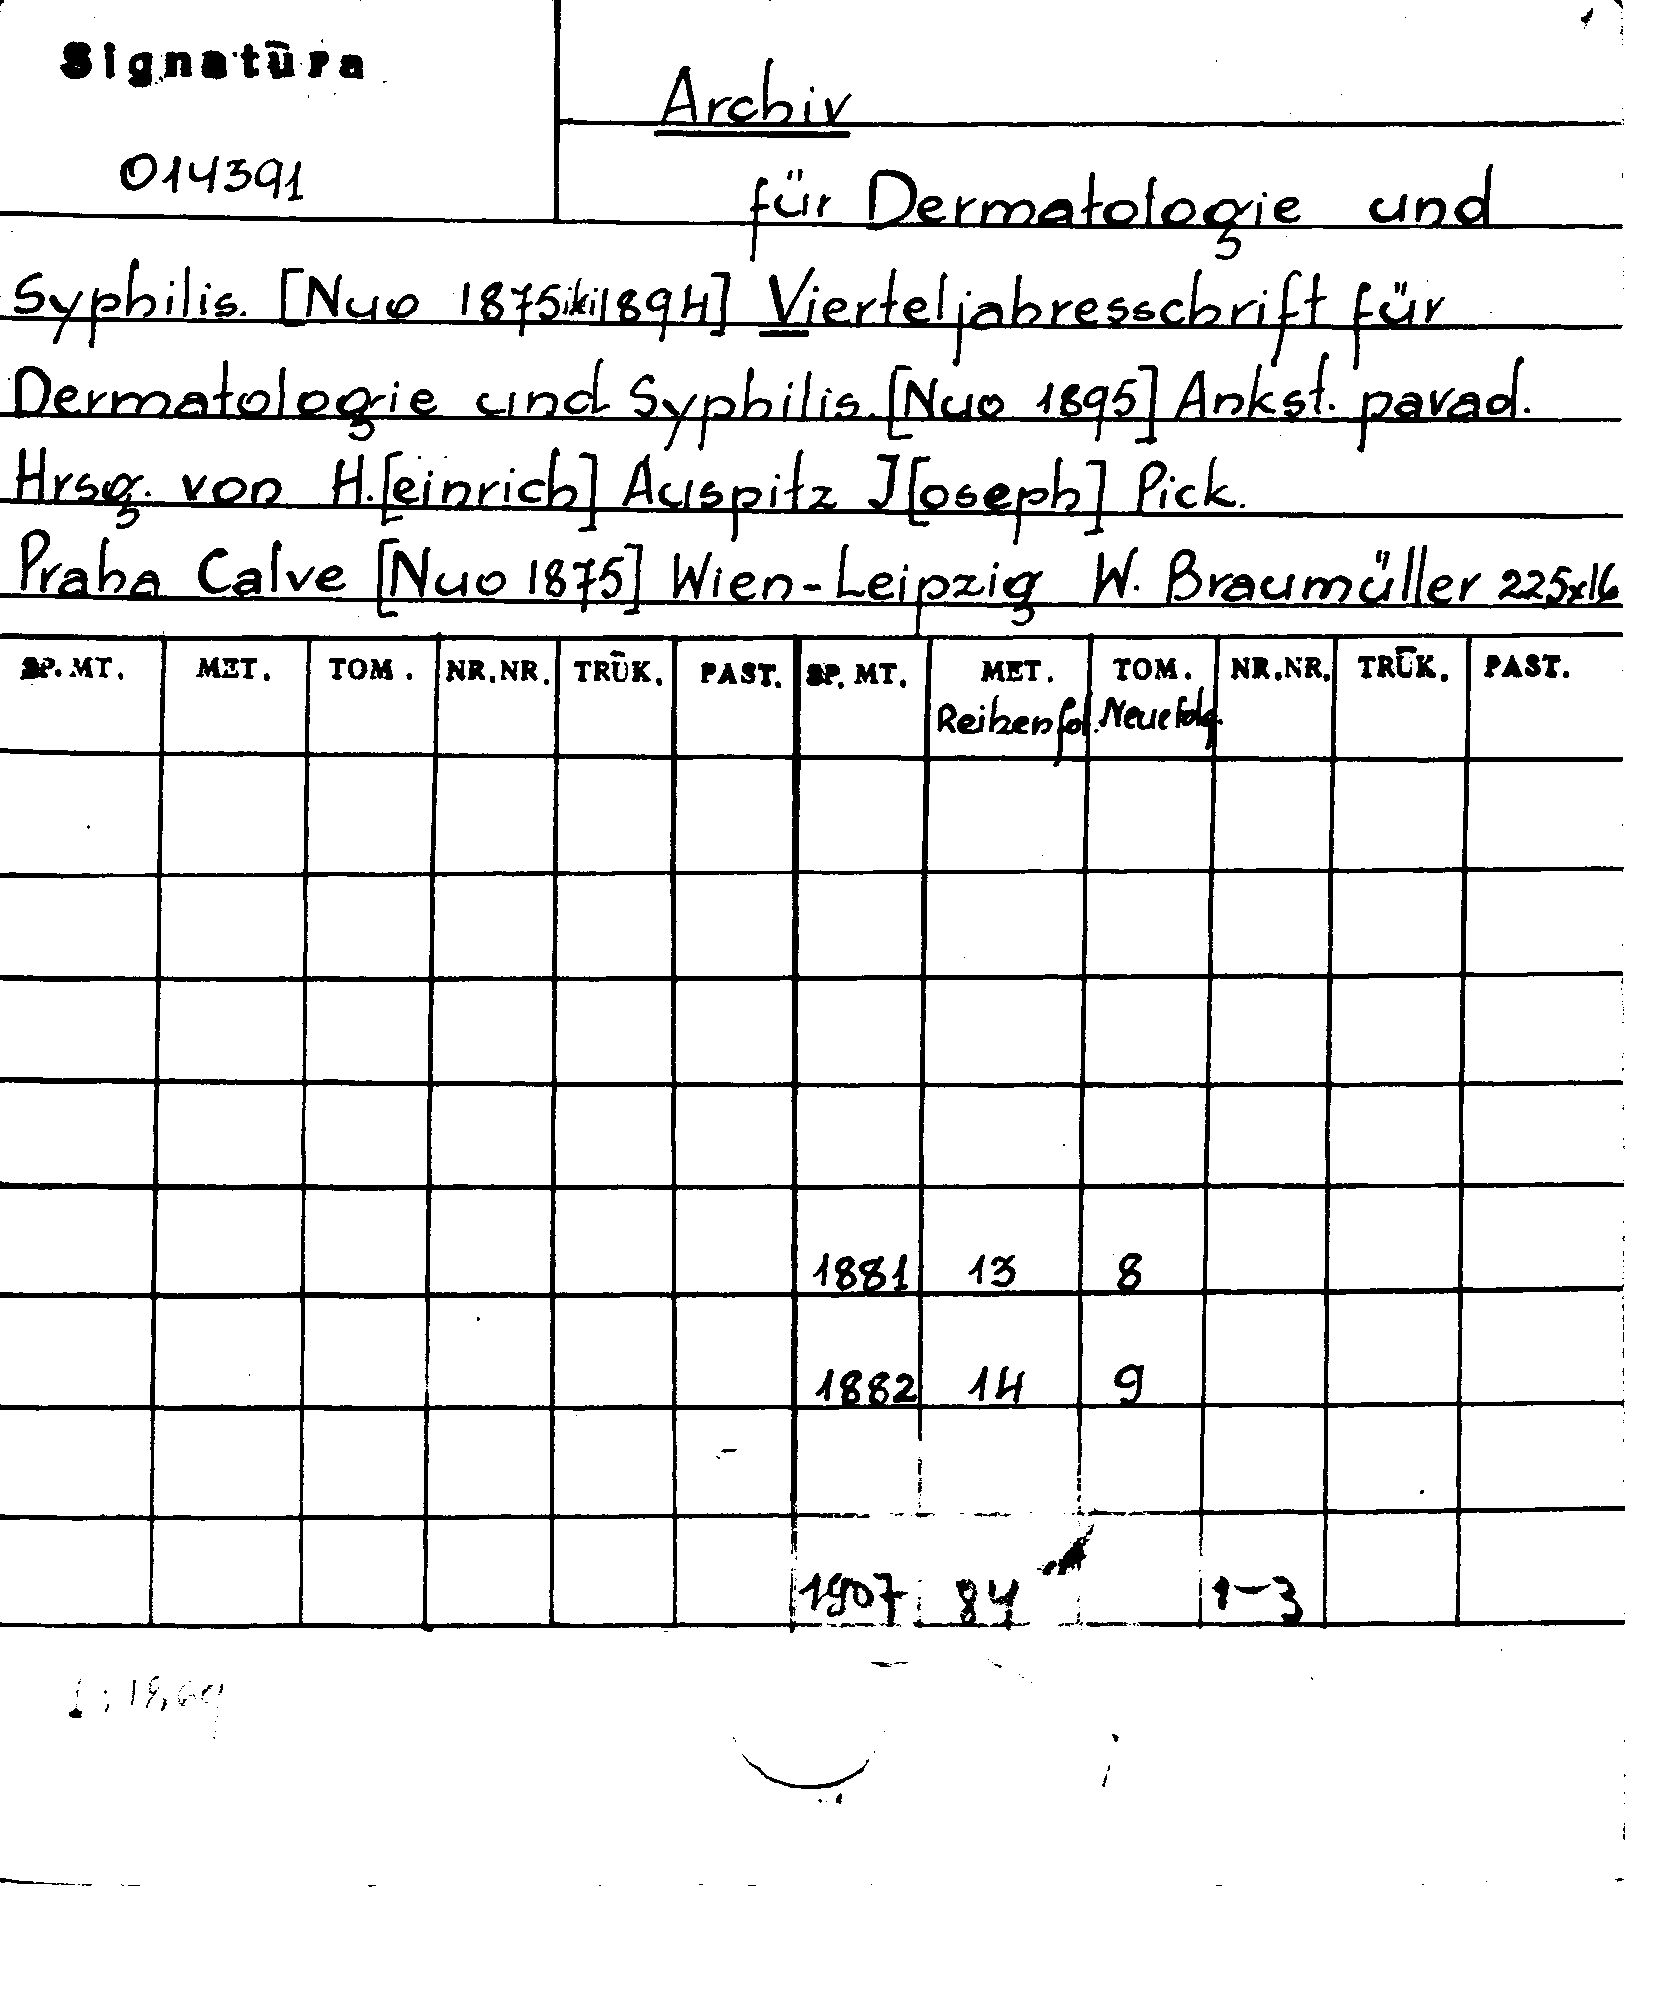 Signatūra
014391
Archiv
für Dermatologie und
Syphilis. [Nuo 1875iki1894] Vierteljahresschrift für
Dermatologie und Syphilis. [Nuo 1895] Ankst. pavad.
Hrsg. von H.[einrich] Auspitz J[oseph] Pick.
Praha Calve [Nuo 1875] Wien-Leipzig W. Braumüller 225x16
SP. MT. MET. TOM. NR.NR. TRŪK. PAST. SP. MT. MET. TOM. NR.NR. TRŪK. PAST.
Reihenfol. Neue folg.
1881 13 8
1882 14 9
1907 84 1-3